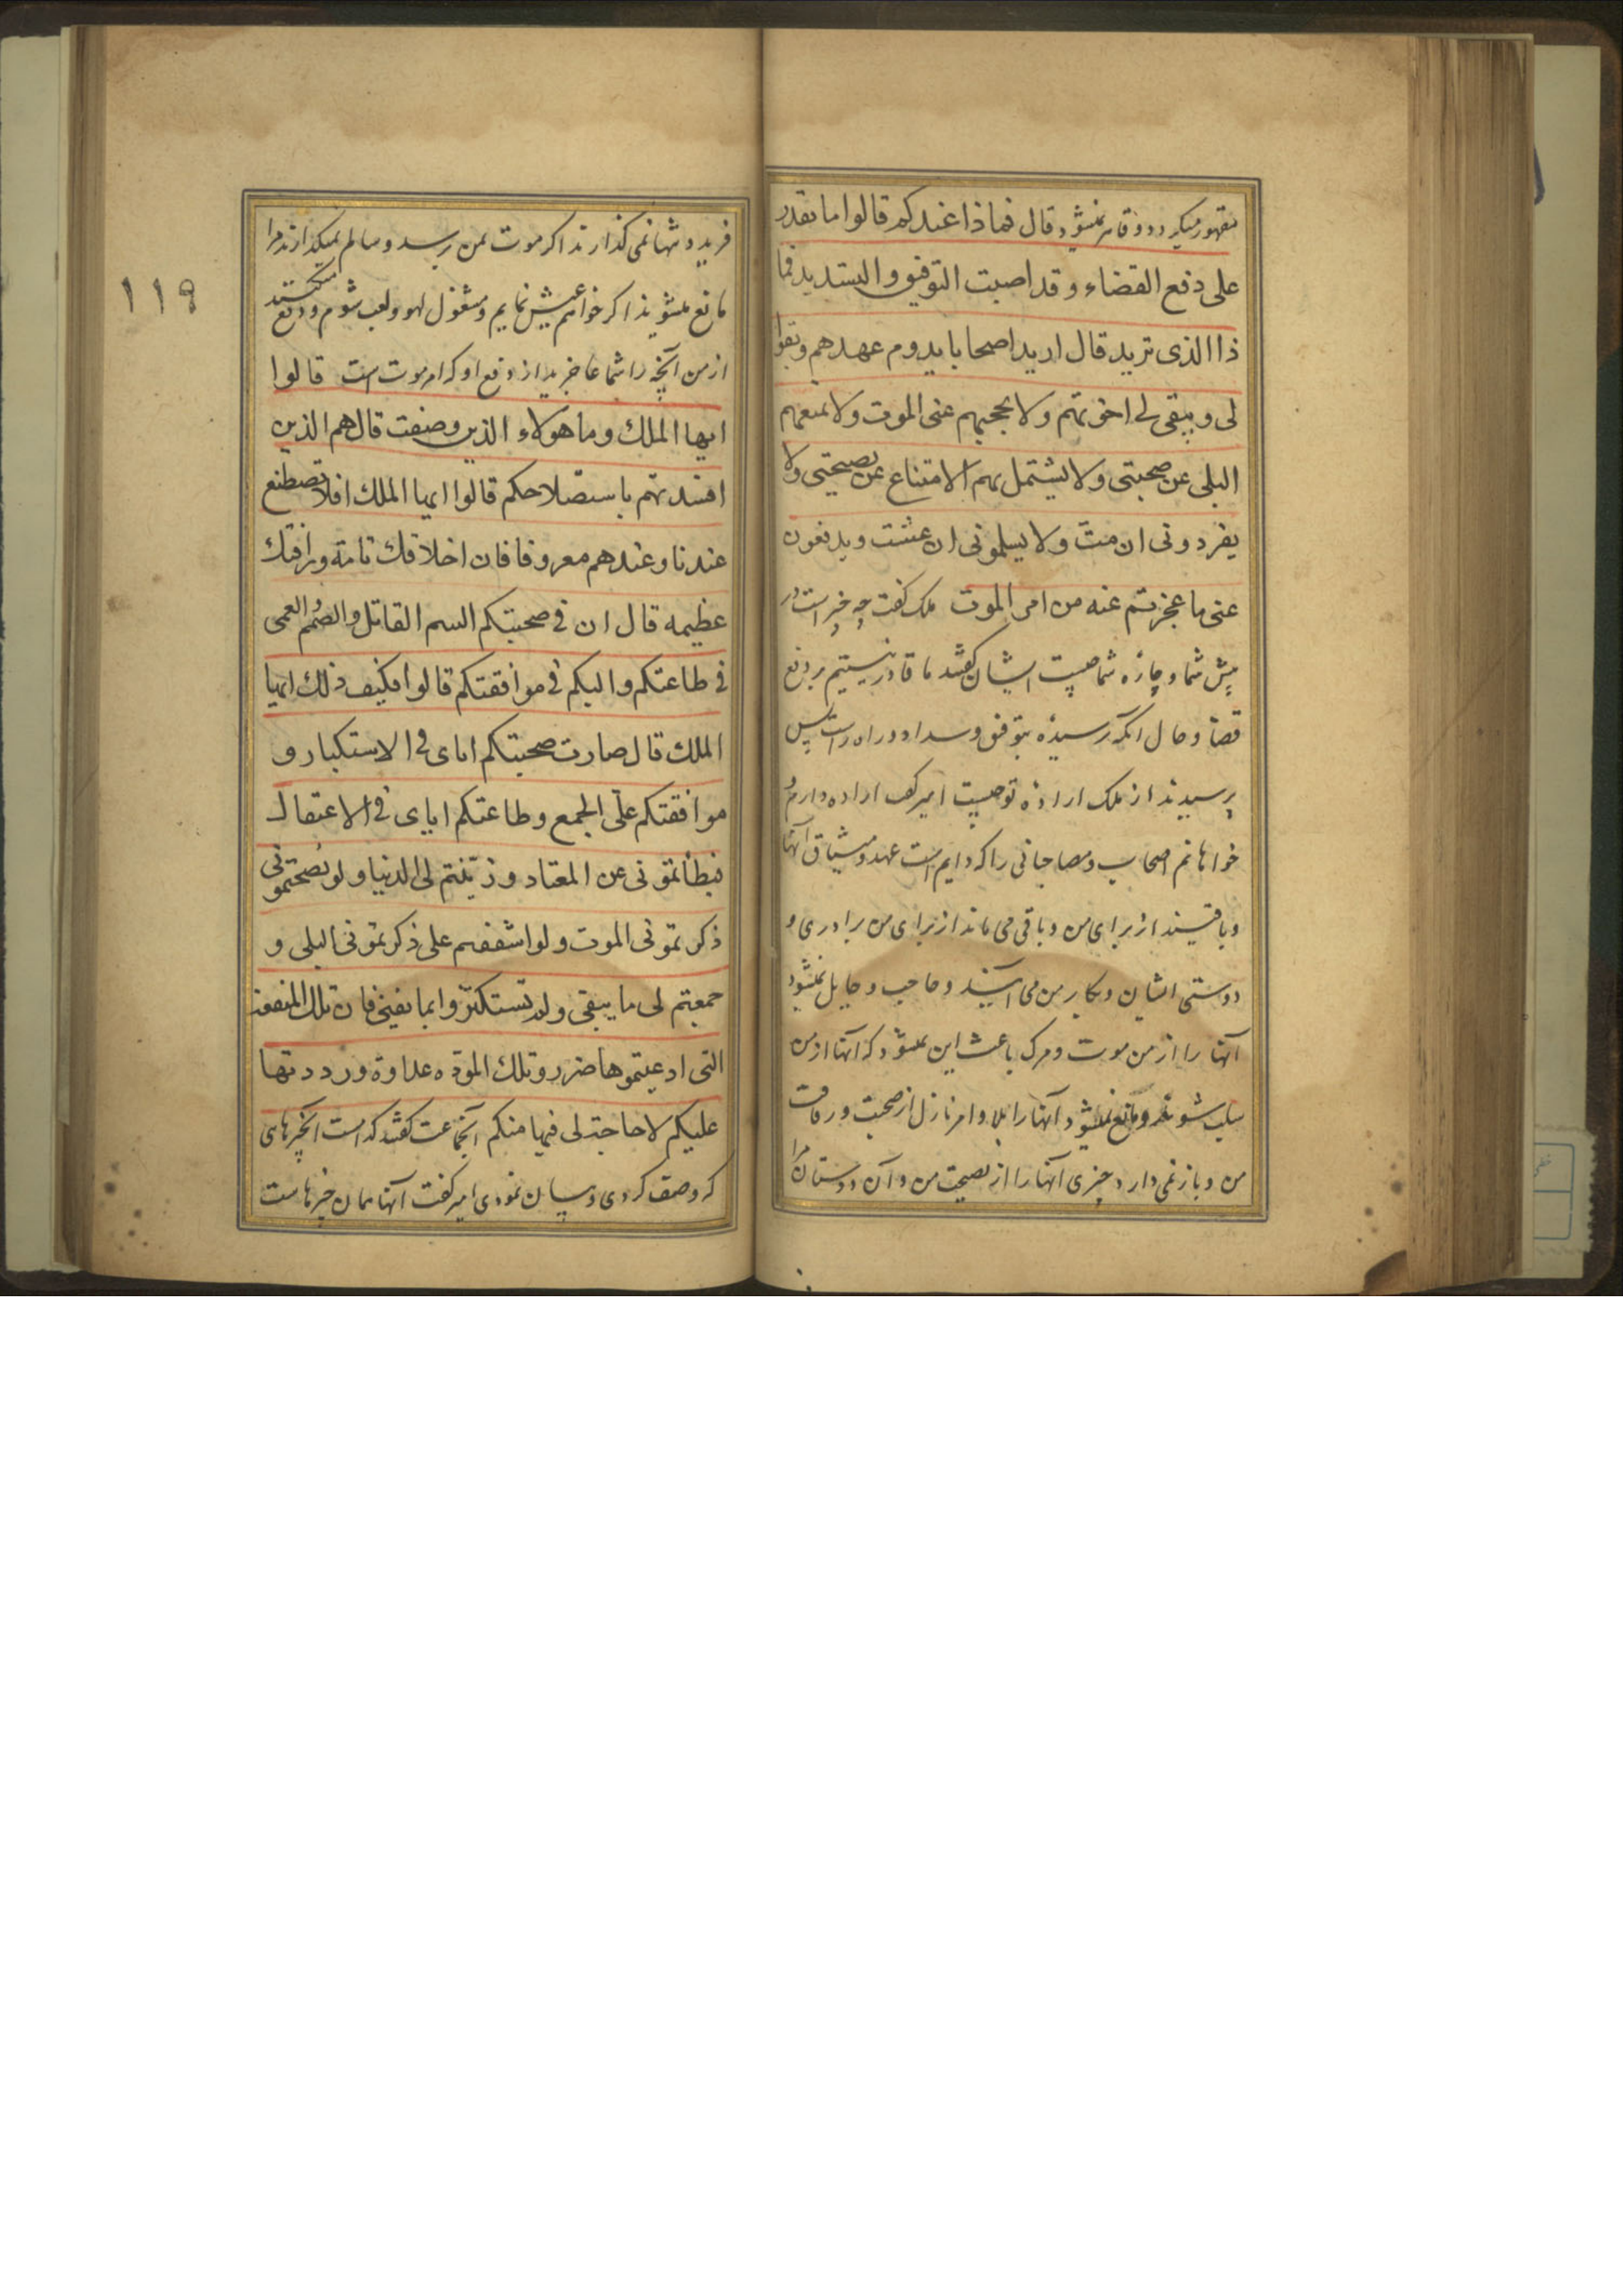 مقهور میگردد و قاهر نمیشود قال فماذا عندکم قالوا ما نقدر
علی دفع القضاء و قد اصبت التوفیق والتسدید فما
ذا الذی ترید قال ارید اصحابا یدوم عهدهم و یفوا
لی و یبقی لی اخوتهم ولا یحجبهم عنی الموت ولا یمنعهم
البلی عن صحبتی ولا یشتمل بهم الامتناع عن نصیحتی ولا
یفردونی ان مت ولا یسلمونی ان عشت و یدفعون
عنی ما عجزتم عنه من امر الموت ملک گفت چه چیز است در
پیش شما و چاره شما چیست ایشان گفتند ما قادر نیستیم بر دفع
قضا و حال آنکه رسیده بتوفیق و سداد و راه راست پس
پرسیدند از ملک اراده تو چیست امیر گفت اراده دارم و
خواهانم اصحاب و مصاحبانی را که دایم است عهد و میثاق آنها
و باقیند از برای من و باقی می ماند از برای من برادری و
دوستی ایشان و بکار من می آیند و حاجب و حایل نمیشود
آنها را از من موت و مرگ باعث این نمیشود که آنها از من
سلب شوند و مانع نمیشود آنها را بلا و امر نازل از صحبت و رفاقت
من و باز نمی دارد چیزی آنها را از نصیحت من و آن دوستان مرا
۱۱۹
فرید و تنها نمی گذارند اگر موت بمن رسد و سالم نمیگذارند مرا
مانع میشوند اگر خواهم عیش نمایم و مشغول لهو و لعب شوم و دفع میکنند
از من آنچه را شما عاجزید از دفع او که امر موت است قالوا
ایها الملک و ما هولاء الذین وصفت قال هم الذین
افسدتهم باستصلاحکم قالوا ایها الملک افلا تصطنع
عندنا و عندهم معروفا فان اخلاقک تامة و رافتک
عظیمه قال ان فی صحبتکم السم القاتل والصمم والعمی
فی طاعتکم والبکم فی موافقتکم قالوا فکیف ذلک ایها
الملک قال صارت صحبتکم ایای فی الاستکبار و
موافقتکم علی الجمع و طاعتکم ایای فی الاعتقال
فبطأتمونی عن المعتاد و زینتم لی الدنیا ولو نصحتمونی
ذکرتمونی الموت ولو اشفقتم علی ذکرتمونی البلی و
جمعتم لی ما یبقی ولم تستکثروا بما یفنی فان تلک المنفعة
التی ادعیتموها ضرر و تلک المودة عداوة و رددتها
علیکم لا حاجة لی فیها منکم آنجماعت گفتند کدام است آنچیزهای
که وصف کردی و بیان نمودی امیر گفت آنها همان چیزهاست